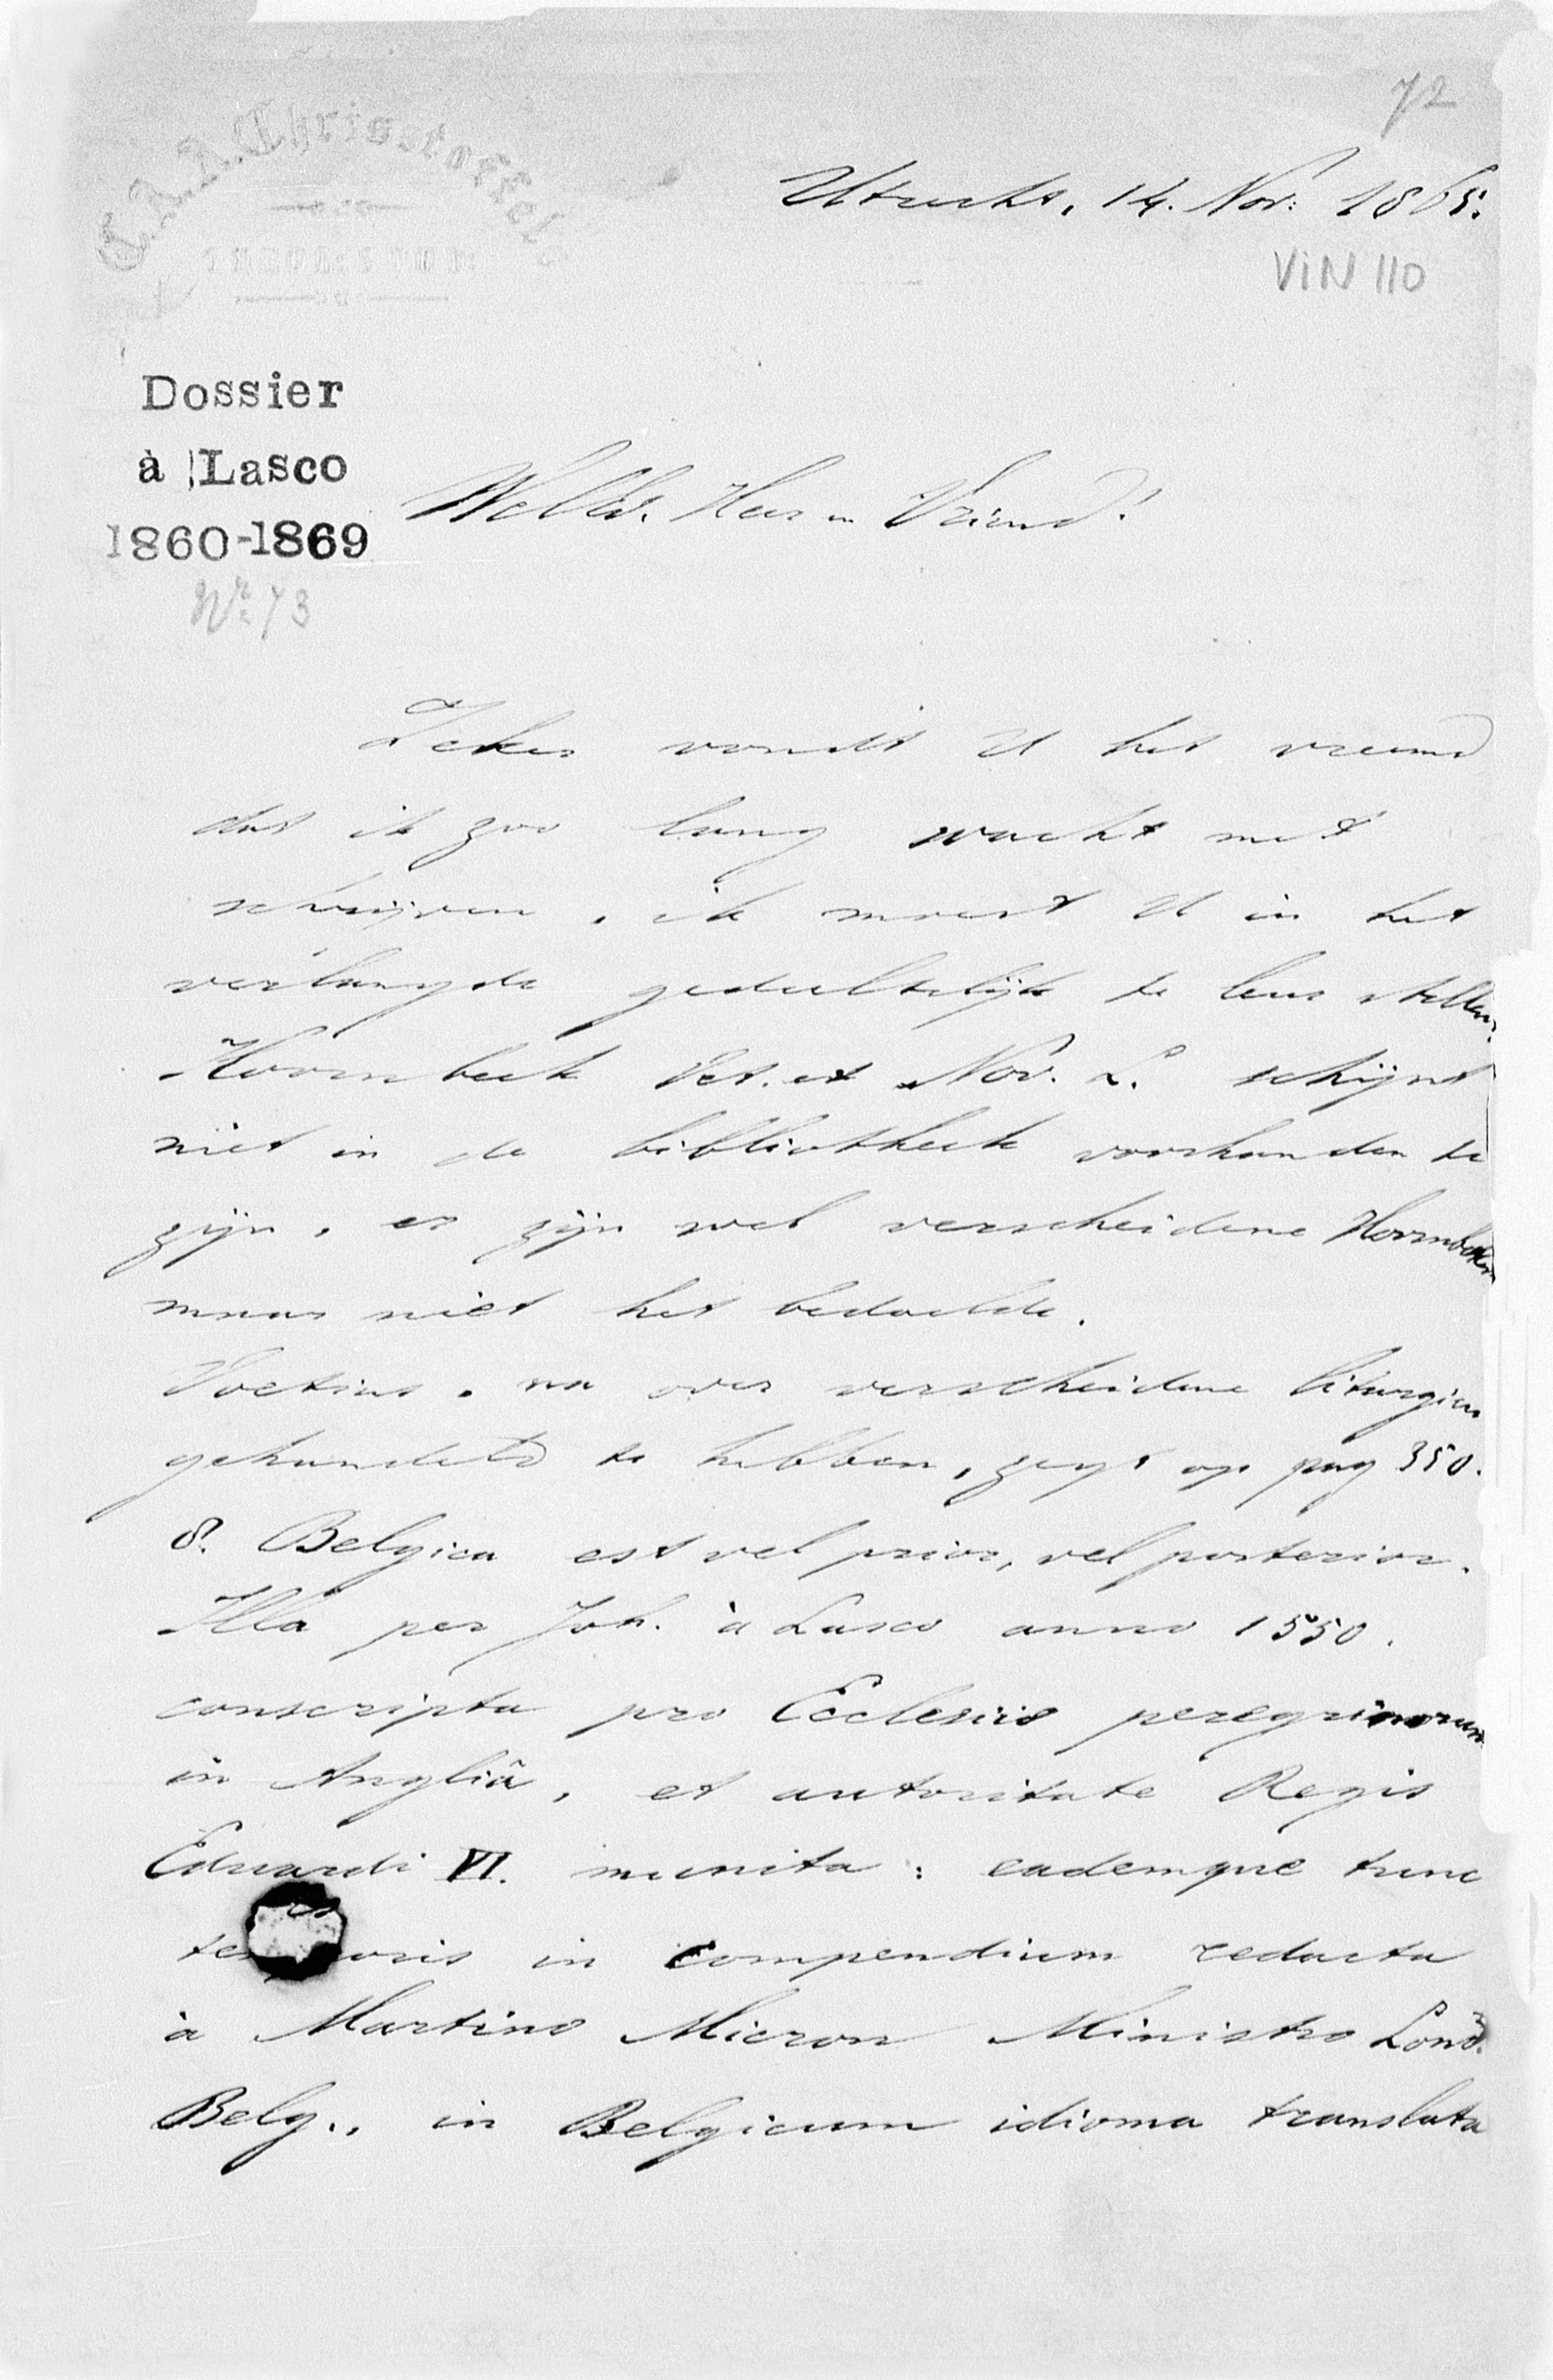 72
C.A.A. Christoffels
THEOL: STUD:
Utrecht, 14. Nov: 1865.
VIN 110
Dossier
à Lasco
1860-1869
N° 73
WelEd. Heer en Vriend!
Zeker vondt U het vreemd
dat ik zoo lang wacht met
schrijven, ik moest U in het
verlangde gedeeltelijk te leur stellen.
Hoornbeek Vet. et Nov. L. schijnt
niet in de bibliotheek voorhanden te
zijn, er zijn wel verscheidene
maar niet het bedoelde.
Voetius, na over verscheidene liturgien
gehandeld te hebben, zegt op pag 350.
8. Belgica est vel prior, vel posterior.
Illa per Joh. à Lasco anno 1550.
conscripta pro Ecclesiis peregrinorum
in Angliâ, et autoritate Regis
Eduardi VI. munita: eademque tunc
temporis in compendium redacta
à Martino Micron Ministro Lond.
Belg., in Belgicum idioma translata